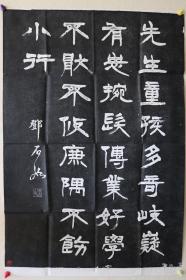 先生童孩多奇岐嶷
有志捥髮傳業好學
不猒不攸廉隅不飭
小行
鄧石如